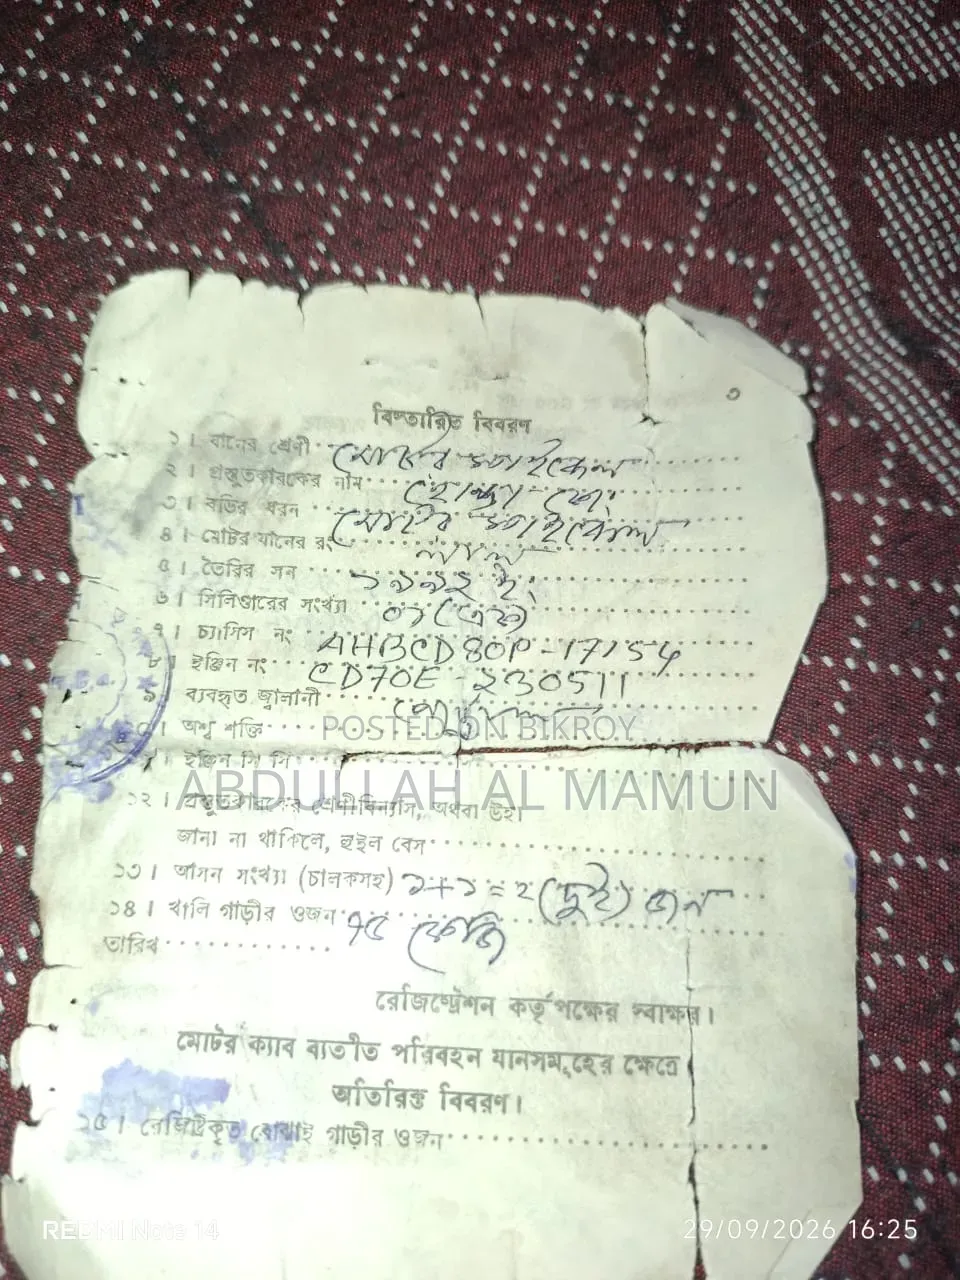 ৩
বিস্তারিত বিবরণ
১। যানের শ্রেণী মোটর সাইকেল
২। প্রস্তুতকারকের নাম হোন্ডা কোং
৩। বডির ধরন মোটর সাইকেল
৪। মোটর যানের রং লাল
৫। তৈরির সন ১৯৯২ ইং
৬। সিলিণ্ডারের সংখ্যা ০১ (এক)
৭। চ্যাসিস নং AHBCD80P-17154
৮। ইঞ্জিন নং CD70E-230511
৯। ব্যবহৃত জ্বালানী
১০। অশ্ব শক্তি
POSTED ON BIKROY
ইঞ্জিন সি সি
ABDULLAH AL MAMUN
১২। প্রস্তুতকারকের শ্রেণীবিন্যাস, অথবা উহা
জানা না থাকিলে, হুইল বেস
১৩। আসন সংখ্যা (চালকসহ) ১+১=২ (দুই) জন
১৪। খালি গাড়ীর ওজন ৭৫ কেজি
তারিখ
রেজিস্ট্রেশন কর্তৃপক্ষের স্বাক্ষর।
মোটর ক্যাব ব্যতীত পরিবহন যানসমূহের ক্ষেত্রে
অতিরিক্ত বিবরণ।
১৫। রেজিস্ট্রিকৃত বোঝাই গাড়ীর ওজন
REDMI Note 14
29/09/2026 16:25